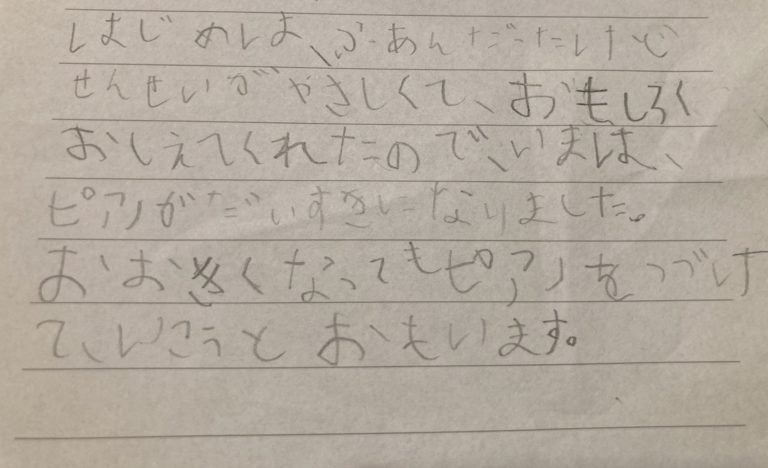 はじめは、ふあんだったけど
せんせいがやさしくて、おもしろく
おしえてくれたので、いまは、
ピアノがだいすきになりました。
おおきくなってもピアノをつづけ
て、いこうとおもいます。